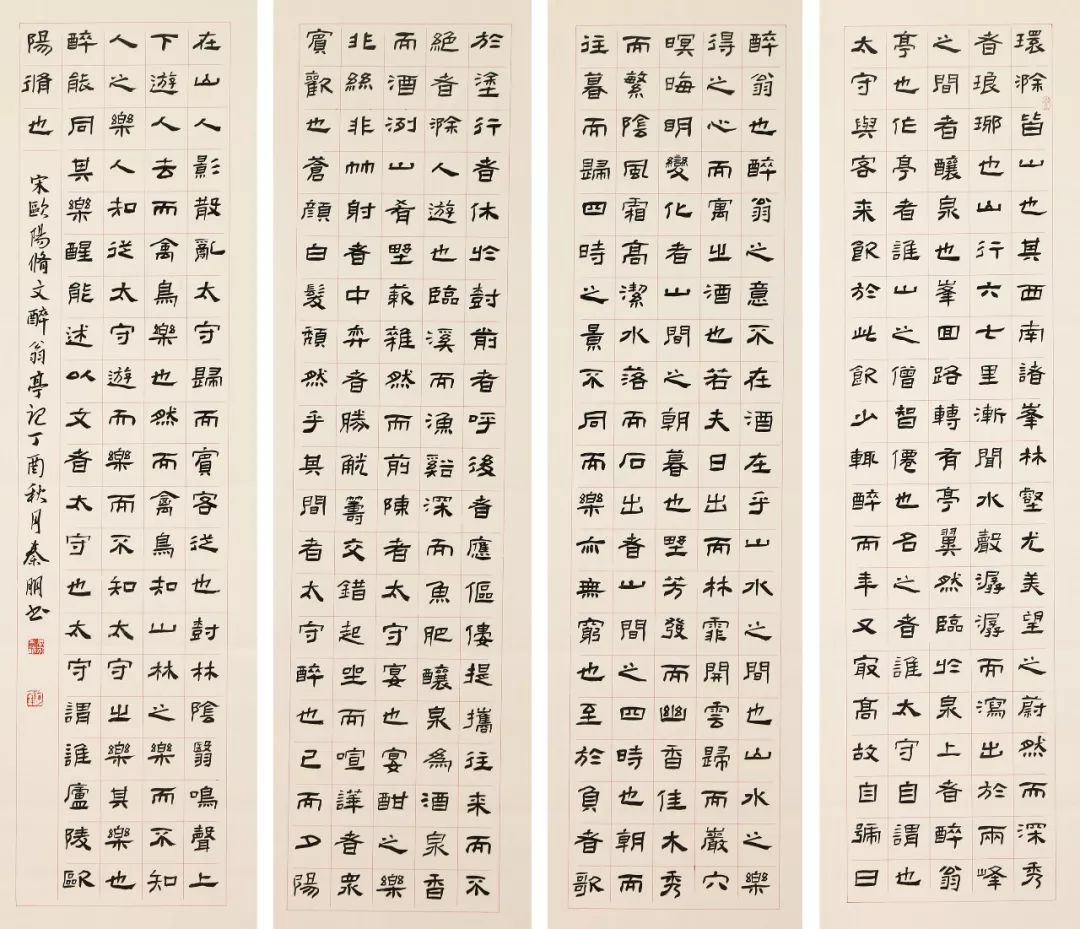 環滁皆山也其西南諸峯林壑尤美望之蔚然而深秀
者琅琊也山行六七里漸聞水聲潺潺而瀉出於兩峰
之間者釀泉也峯回路轉有亭翼然臨於泉上者醉翁
亭也作亭者誰山之僧智僊也名之者誰太守自謂也
太守與客來飲於此飲少輒醉而年又最高故自號曰
醉翁也醉翁之意不在酒在乎山水之間也山水之樂
得之心而寓之酒也若夫日出而林霏開雲歸而巖穴
暝晦明變化者山間之朝暮也野芳發而幽香佳木秀
而繁陰風霜高潔水落而石出者山間之四時也朝而
往暮而歸四時之景不同而樂亦無窮也至於負者歌
於塗行者休於樹前者呼後者應傴僂提攜往來而不
絕者滁人遊也臨溪而漁谿深而魚肥釀泉為酒泉香
而酒洌山肴野蔌雜然而前陳者太守宴也宴酣之樂
非絲非竹射者中弈者勝觥籌交錯起坐而喧譁者眾
賓歡也蒼顏白髮頹然乎其間者太守醉也已而夕陽
在山人影散亂太守歸而賓客從也樹林陰翳鳴聲上
下遊人去而禽鳥樂也然而禽鳥知山林之樂而不知
人之樂人知從太守遊而樂而不知太守之樂其樂也
醉能同其樂醒能述以文者太守也太守謂誰廬陵歐
陽脩也
宋歐陽脩文醉翁亭記丁酉秋月秦朋書